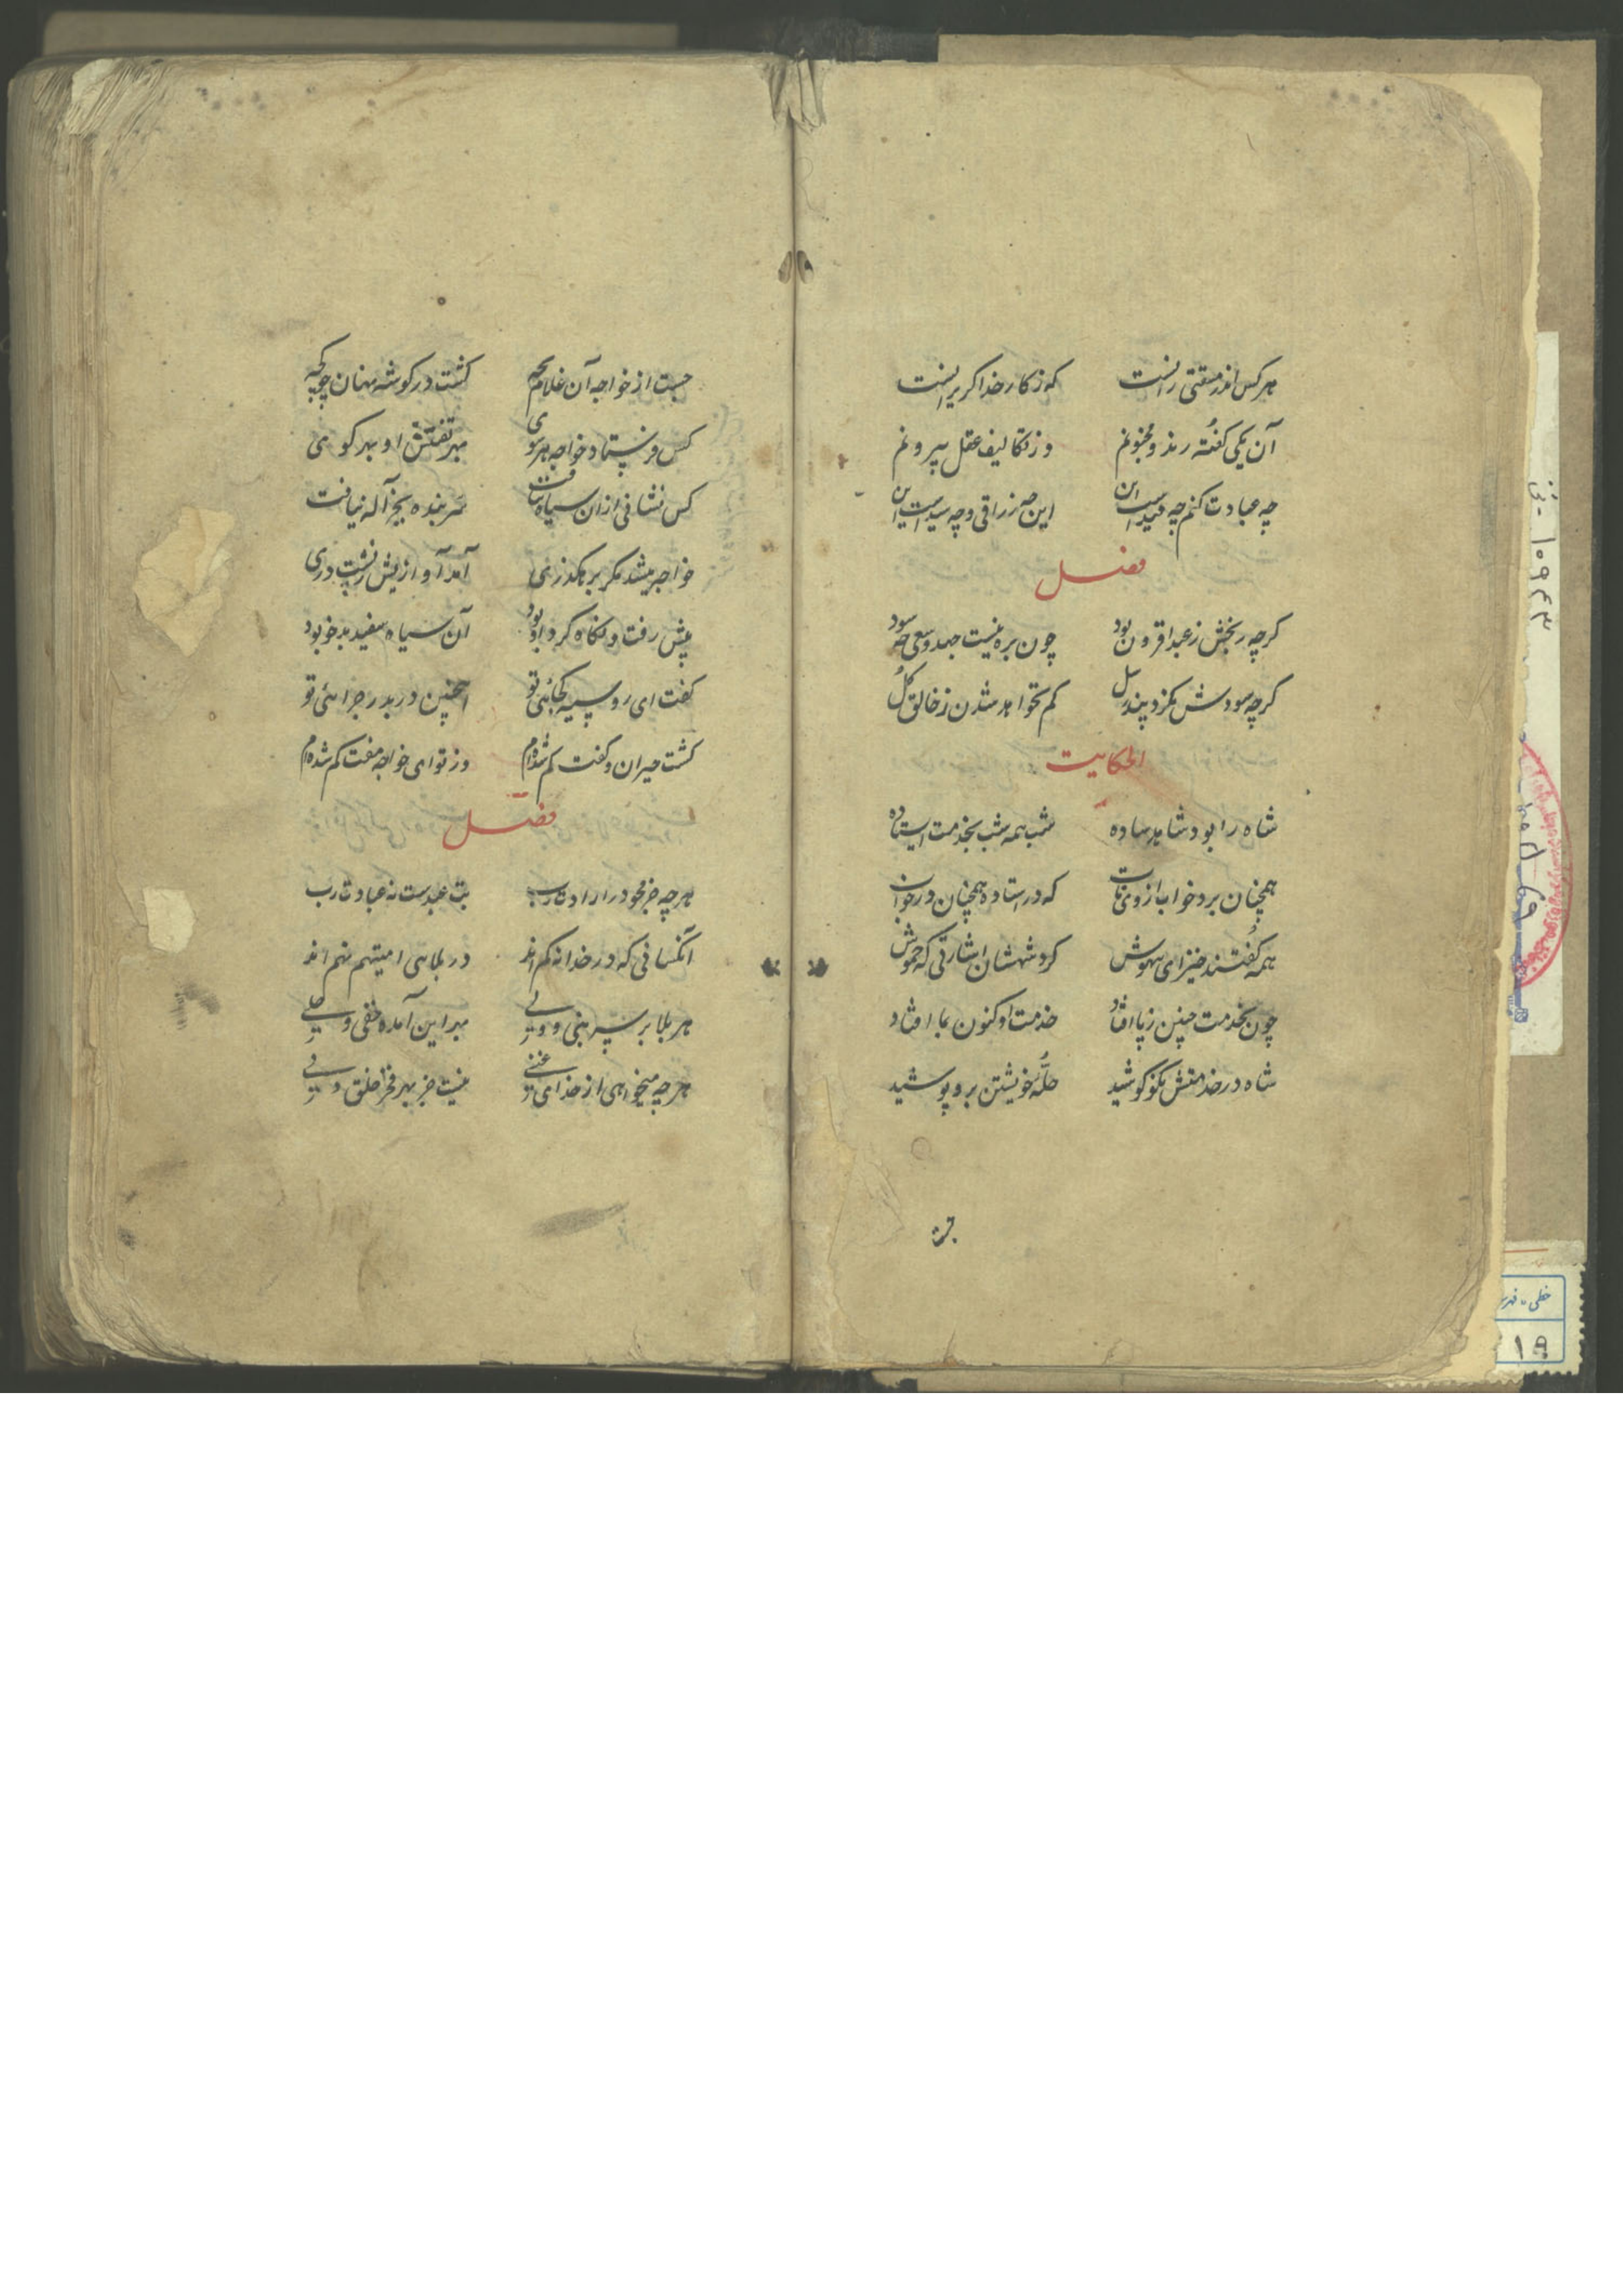 هر کس اندر مشقتی رانست که ز کار خدا کریزانست
آن یکی کفته رند و مجنونم وز تکالیف عقل بیرونم
چه عبادت کنم چه است این این چه زراقی و چه است این
فصل
کرچه ربحش ز عبد افزون بود چون بره نیست جهد و سعی چه سود
کرچه سودش نکرد پند رسل کم نخواهد شدن ز خالق کل
الحکایت
شاه را بود شاهد ساده شب همه شب بخدمت استاده
همچنان برد خواب از وی تاب که در استاده همچنان در خواب
همه کفتند خیز ای بیهوش کرد شهشان اشارتی که خموش
چون بخدمت چنین ز پا افتاد خدمت او کنون بما افتاد
شاه در خدمتش نکو کوشید حلهٔ خویشتن برو پوشید
جست
جست از خواجه آن غلام بچه کشت در کوشه نهان چو کجه
کس فرستاد خواجه هر سوی بهر تفتیش او بهر کوی
کس نشانی ازان سیاه نیافت سر بنده بجز آله نیافت
خواجه میشد مکر برهکذری آمد آوازیش ز پشت دری
پیش رفت و نکاه کرد او بود آن سیاه سفید بدخو بود
کفت ای روسیه کجائی تو اینچنین در بدر چرائی تو
کشت حیران و کفت کم شده ام وز تو ای خواجه مفت کم شده ام
فصل
هر چه جز محو در ارادت رب بت عبدست نه عبادت رب
آنکسانی که در خدا نه کم اند در بلاهی امیتهم نهم اند
هر بلا بر سر بنی و ولی بهر این آمده خفی و جلی
هر چه میخواهی از خدای غنی نیست جز بهر فخر خلق و
خطی - فهر
۱۹